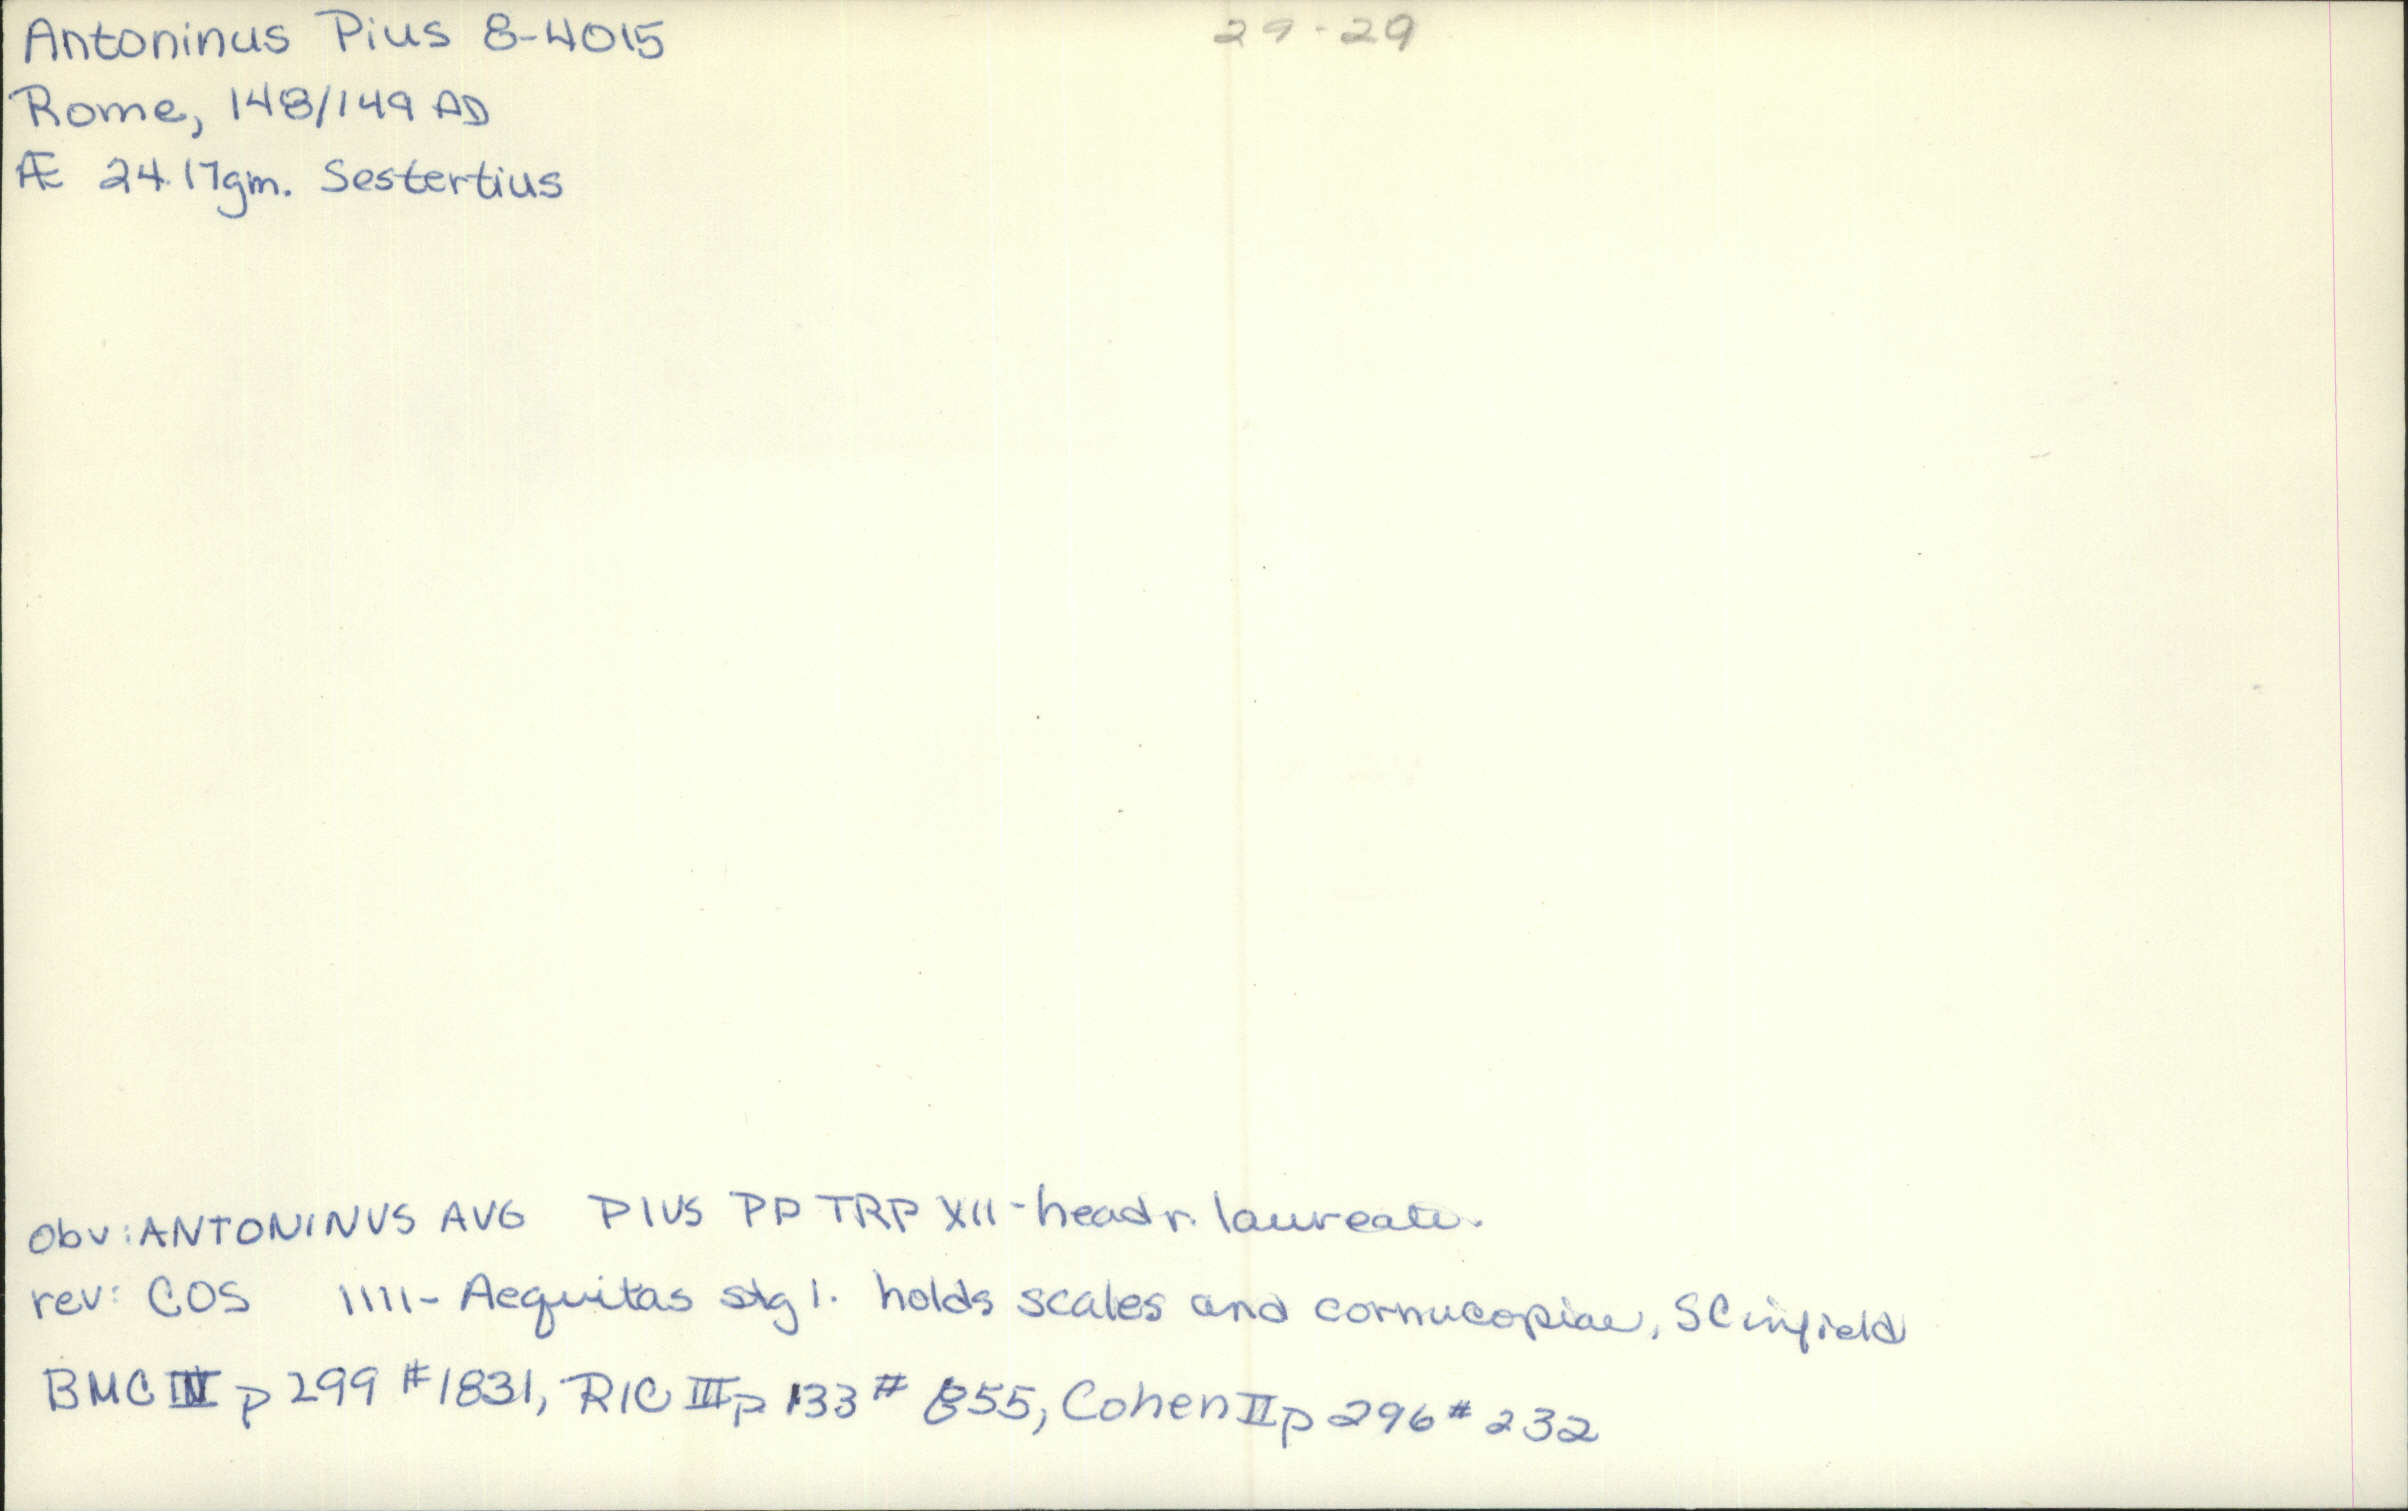 Antoninus Pius 8-4015
29-29
Rome, 148/149 AD
Æ 24.17gm. Sestertius
Obv: ANTONINVS AVG PIVS PP TRP XII - head r. laureate.
rev: COS IIII - Aequitas stg l. holds scales and cornucopiae, SC in field
BMC IV p 299 #1831, RIC III p 133 # 855, Cohen II p 296 # 232